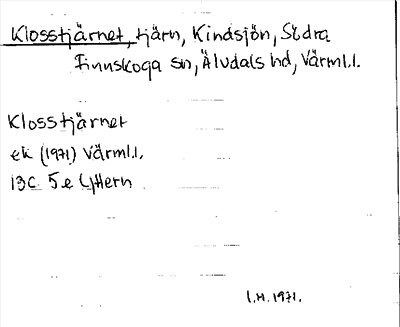 Klosstjärnet, tjärn, Kindsjön, Södra
Finnskoga sn, Älvdals hd, Värml.l.
Klosstjärnet
ek (1971) Värml.l.
13C 5e
I.H. 1971.